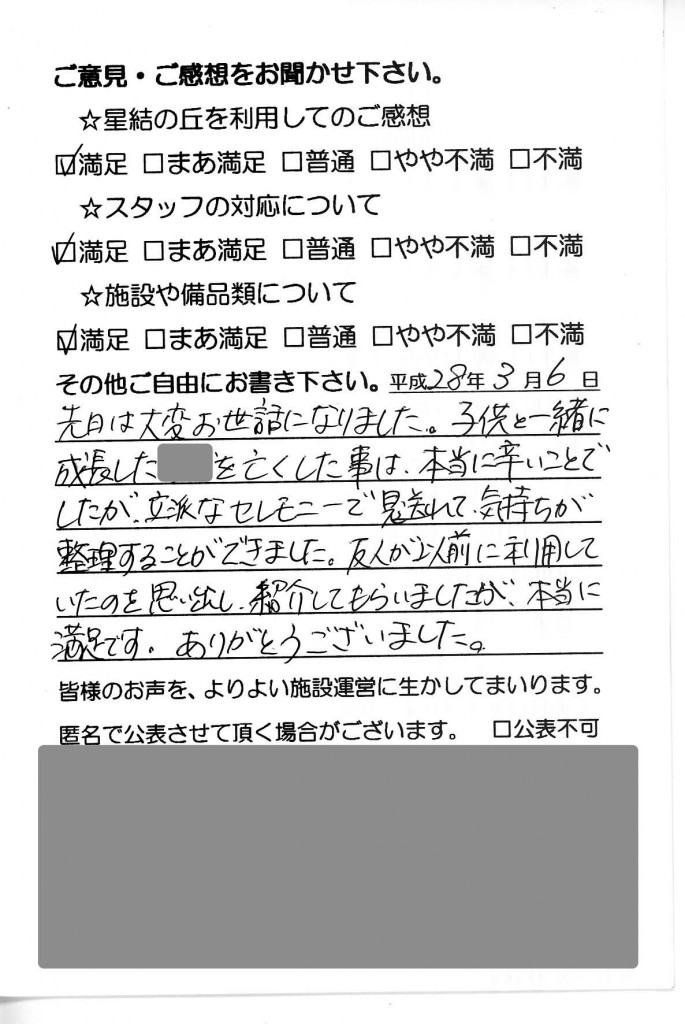 ご意見・ご感想をお聞かせ下さい。
☆星結の丘を利用してのご感想
☑満足 □まあ満足 □普通 □やや不満 □不満
☆スタッフの対応について
☑満足 □まあ満足 □普通 □やや不満 □不満
☆施設や備品類について
☑満足 □まあ満足 □普通 □やや不満 □不満
その他ご自由にお書き下さい。平成28年3月6日
先日は大変お世話になりました。子供と一緒に
成長した を亡くした事は、本当に辛いことで
したが、立派なセレモニーで見送れて、気持ちが
整理することができました。友人が以前に利用して
いたのを思い出し、紹介してもらいましたが、本当に
満足です。ありがとうございました。
皆様のお声を、よりよい施設運営に生かしてまいります。
匿名で公表させて頂く場合がございます。 □公表不可